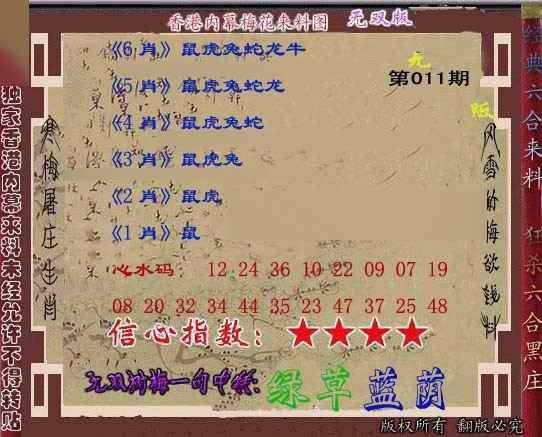 香港内幕梅花来料图 无双版
《6 肖》鼠虎兔蛇龙牛
无
第011期
《5 肖》鼠虎兔蛇龙
版
《4 肖》鼠虎兔蛇
《3 肖》鼠虎兔
《2 肖》鼠虎
《1 肖》鼠
心水码: 12 24 36 10 22 09 07 19
08 20 32 34 44 35 23 47 37 25 48
信心指数: ★★★★
绿草蓝荫
版权所有 翻版必究
独家香港内幕来料未经允许不得转贴
寒梅屠庄生肖
风雪的梅欲钱料
经典六合来料 狂杀六合黑庄